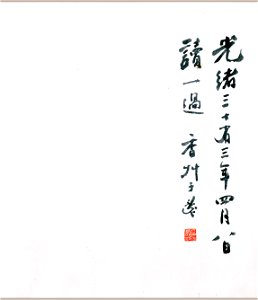 光緒三十有三年四月八日
讀一過 香艸子